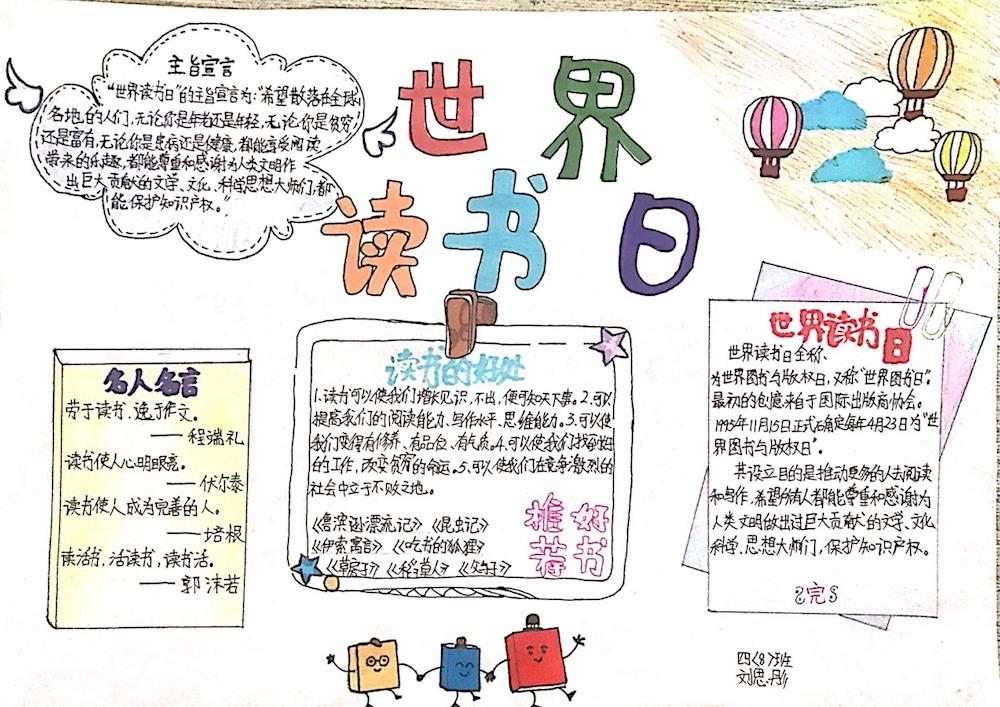 主旨宣言
“世界读书日”的主旨宣言为:“希望散落在全球
各地的人们,无论你是年老还是年轻,无论你是贫穷
还是富有,无论你是患病还是健康,都能享受阅读
带来的乐趣,都能尊重和感谢为人类文明作
出巨大贡献的文学、文化、科学思想大师们,都
能保护知识产权。”
世界
读书日
名人名言
劳于读书,逸于作文。
——程端礼
读书使人心明眼亮。
——伏尔泰
读书使人成为完善的人。
——培根
读活书,活读书,读书活。
——郭沫若
读书的好处
1.读书可以使我们增长见识,不出,便可知天下事。2.可以
提高我们的阅读能力、写作水平、思维能力。3.可以使
我们变得有修养、有品位、有气质。4.可以使我们找到好
的工作,改变贫穷的命运。5.可以使我们在竞争激烈的
社会中立于不败之地。
《鲁滨逊漂流记》 《昆虫记》
《伊索寓言》 《吃书的狐狸》
《草房子》 《稻草人》
推荐
好书
世界读书日
世界读书日全称、
为世界图书与版权日,又称“世界图书日”。
最初的创意来自于国际出版商协会。
1995年11月15日正式确定每年4月23日为“世
界图书与版权日”。
其设立目的是推动更多的人去阅读
和写作,希望所有人都能尊重和感谢为
人类文明做出过巨大贡献的文学、文化
科学、思想大师们,保护知识产权。
完
四(8)班
刘思彤